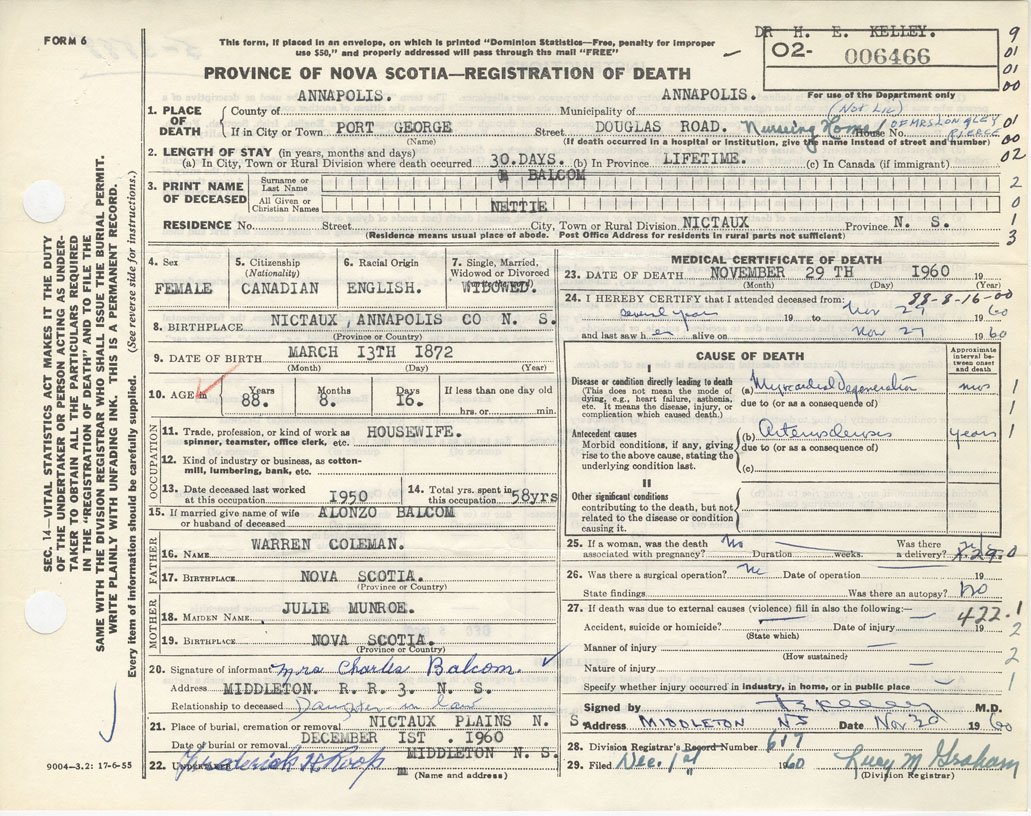 FORM 6
This form, if placed in an envelope, on which is printed "Dominion Statistics—Free, penalty for improper
use $50," and properly addressed will pass through the mail "FREE"
DR H. E. KELLEY.
02- 006466
For use of the Department only
PROVINCE OF NOVA SCOTIA—REGISTRATION OF DEATH
9
01
01
00
01
00
02
2
0
1
3
1. PLACE OF DEATH
County of ANNAPOLIS. Municipality of ANNAPOLIS.
If in City or Town PORT GEORGE Street DOUGLAS ROAD. Nursing Home (Not Lic) House No. OF MRS LONGLEY PIERCE
(Name) (If death occurred in a hospital or Institution, give the name instead of street and number)
2. LENGTH OF STAY (in years, months and days)
(a) In City, Town or Rural Division where death occurred. 30.DAYS. (b) In Province LIFETIME. (c) In Canada (if immigrant)
3. PRINT NAME OF DECEASED
Surname or Last Name BALCOM
All Given or Christian Names NETTIE
RESIDENCE No. Street City, Town or Rural Division NICTAUX Province N. S.
(Residence means usual place of abode. Post Office Address for residents in rural parts not sufficient)
4. Sex FEMALE
5. Citizenship (Nationality) CANADIAN
6. Racial Origin ENGLISH.
7. Single, Married, Widowed or Divorced WIDOWED.
8. BIRTHPLACE NICTAUX, ANNAPOLIS CO N. S.
(Province or Country)
9. DATE OF BIRTH MARCH 13TH 1872
(Month) (Day) (Year)
10. AGE in Years 88. Months 8. Days 16. If less than one day old
hrs. or min.
OCCUPATION
11. Trade, profession or kind of work as spinner, teamster, office clerk, etc. HOUSEWIFE.
12. Kind of industry or business, as cotton-mill, lumbering, bank, etc.
13. Date deceased last worked at this occupation 1950
14. Total yrs. spent in this occupation 58yrs
15. If married give name of wife or husband of deceased ALONZO BALCOM
FATHER
16. NAME WARREN COLEMAN.
17. BIRTHPLACE NOVA SCOTIA.
(Province or Country)
MOTHER
18. MAIDEN NAME JULIE MUNROE.
19. BIRTHPLACE NOVA SCOTIA.
(Province or Country)
20. Signature of informant Mrs Charles Balcom.
Address MIDDLETON. R. R. 3. N. S.
Relationship to deceased Daughter in law
21. Place of burial, cremation or removal NICTAUX PLAINS N. S
Date of burial or removal DECEMBER 1ST. 1960
22. UNDERTAKER Frederick H Roop MIDDLETON N. S.
(Name and address)
9004—3.2: 17-6-55
MEDICAL CERTIFICATE OF DEATH
23. DATE OF DEATH NOVEMBER 29 TH 1960 19
(Month) (Day) (Year)
24. I HEREBY CERTIFY that I attended deceased from: 88-8-16-00
several years 19 to Nov 29 1960
and last saw her alive on Nov 27 1960
CAUSE OF DEATH
Approximate interval between onset and death
I
Disease or condition directly leading to death
(This does not mean the mode of dying, e.g., heart failure, asthenia, etc. It means the disease, injury, or complication which caused death.)
(a) Myocardial Degeneration mos 1
due to (or as a consequence of) 1
Antecedent causes
Morbid conditions, if any, giving rise to the above cause, stating the underlying condition last.
(b) Arteriosclerosis years 1
due to (or as a consequence of)
(c)
II
Other significant conditions
contributing to the death, but not related to the disease or condition causing it.
25. If a woman, was the death associated with pregnancy? No Duration weeks. Was there a delivery?
26. Was there a surgical operation? no Date of operation 19
State findings Was there an autopsy? No
27. If death was due to external causes (violence) fill in also the following:— 422.1
Accident, suicide or homicide? Date of injury 19 2
(State which)
Manner of injury 2
(How sustained)
Nature of injury
Specify whether injury occurred in industry, in home, or in public place 1
Signed by H E Kelley M.D.
Address MIDDLETON NS Date Nov 30 1960
28. Division Registrar's Record Number 617
29. Filed Dec. 1st 1960 Lucy M Graham
(Division Registrar)
SEC. 14—VITAL STATISTICS ACT MAKES IT THE DUTY
OF THE UNDERTAKER OR PERSON ACTING AS UNDER-
TAKER TO OBTAIN ALL THE PARTICULARS REQUIRED
IN THE "REGISTRATION OF DEATH" AND TO FILE THE
SAME WITH THE DIVISION REGISTRAR WHO SHALL ISSUE THE BURIAL PERMIT.
WRITE PLAINLY WITH UNFADING INK. THIS IS A PERMANENT RECORD.
Every item of information should be carefully supplied. (See reverse side for instructions.)